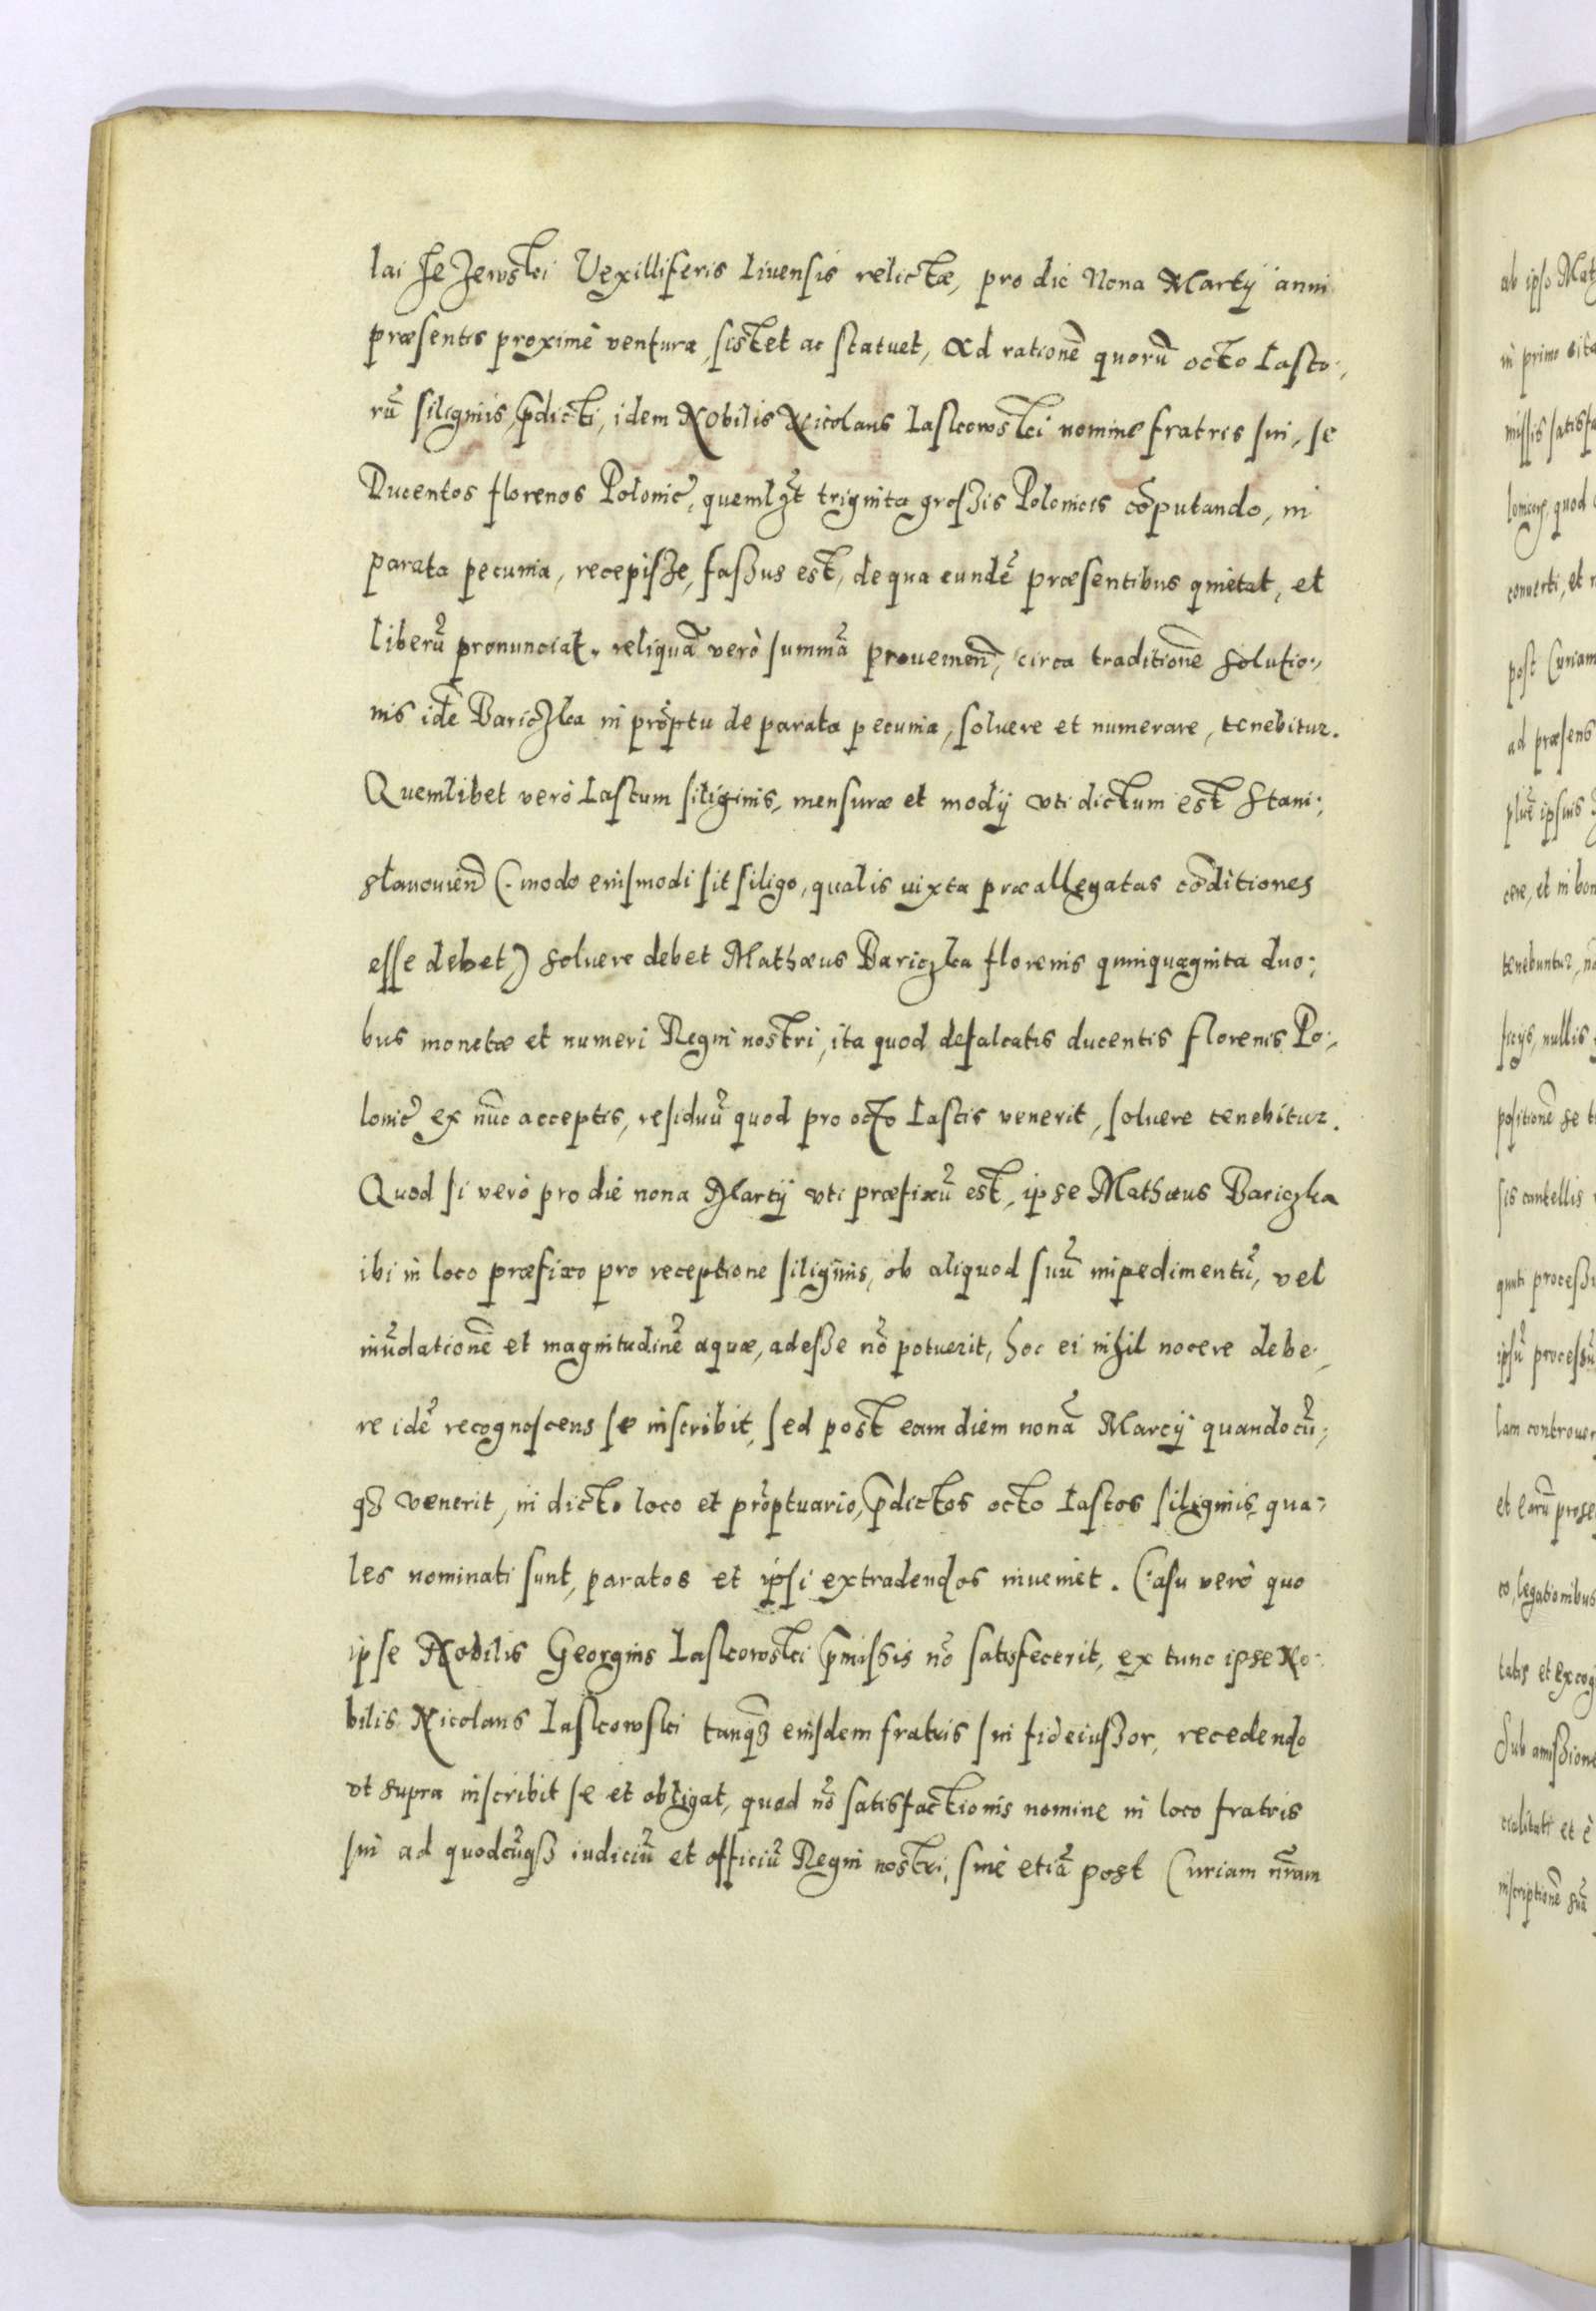 lai JeZewski Vexilliferis Liuensis relictæ, pro die Nona Martij anni
præsentis proximè ventura, sistet ac statuet, Ad rationē quorū octo Lasto-,
rū siliginis, p̄dicti, idem Nobilis Nicolaus Laskowski nomine fratris sui, se
Ducentos florenos Polonic̄, quemlg̃t triginta groszis Polonicis cōputando, in
parata pecunia, recepisze, faszus est, de qua eundē præsentibus quietat, et
liberū pronunciat. reliquā verò summā prouenien̄, circa traditionē Solutio-,
nis idē Bariczka in prōptu de parata pecunia, soluere et numerare, tenebitur.
Quemlibet verò Lastum siliginis, mensuræ et modij vti dictum est Stani-,
slauouien̄ (modo eiusmodi sit siligo, qualis iuxta præallegatas cōditiones
esse debet) soluere debet Mathæus Bariczka florenis quinquaginta duo-,
bus monetæ et numeri Regni nostri, ita quod defalcatis ducentis florenis Po-,
lonic̄ ex nūc acceptis, residuū quod pro octo Lastis venerit, soluere tenebitur.
Quod si verò pro die nona Martij vti præfixū est, ipse Mathæus Bariczka
ibi in loco præfixo pro receptione siliginis, ob aliquod suū impedimentū, vel
inūdationē et magnitudinē aquæ, adesze nō potuerit, hoc ei nihil nocere debe-,
re idē recognoscens se inscribit, sed post eam diem nonā Martij quandocū-,
q3 venerit, in dicto loco et prōptuario, p̄dictos octo Lastos siliginis, qua-,
les nominati sunt, paratos et ipsi extradendos inueniet. Casu verò quo
ipse Nobilis Georgius Laskowski p̄miszis nō satisfecerit, ex tunc ipse No-
bilis Nicolaus Laskowski tanq̄3 eiusdem fratris sui fideiuszor, recedendo
vt supra inscribit se et obligat, quod nō satisfactionis nomine in loco fratris
sui ad quodcūq3 iudiciū et officiū Regni nostri, siue etiā post Curiam nr̄am